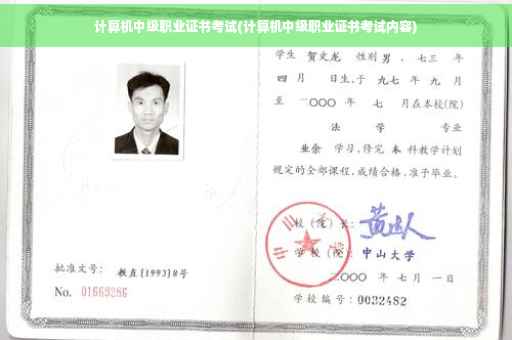 计算机中级职业证书考试(计算机中级职业证书考试内容)
学生 贺文龙 性别 男 、七三 年
四 月 日生,于 九七 年 九 月
至 二〇〇〇 年 七 月在本校(院)
法 学 专业
业余 学习,修完 本 科教学计划
规定的全部课程,成绩合格,准予毕业。
校(院)长:
学校(院): 中山大学
二〇〇〇 年 七 月 一 日
学校编号: 0032482
批准文号: 教直[1993]8号
No. 01669286